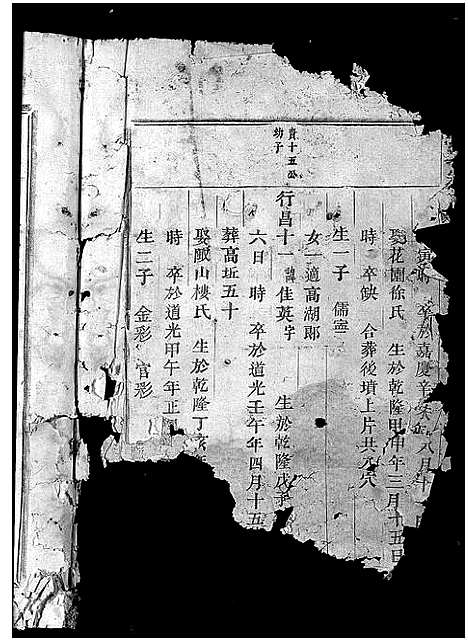 卒於嘉慶辛未年八月十
娶花園徐氏　生於乾隆甲申年三月十五日
時　卒缺　合葬後墳上片共穴
生一子　儒寧
女一適高湖郎
貴十五公
幼子
行昌十一諱佳英字　生於乾隆戊子
六日　時　卒於道光壬午年四月十五
葬高坵五十
娶殿山樓氏　生於乾隆丁亥
時　卒於道光甲午年正
生二子　金彩　官彩